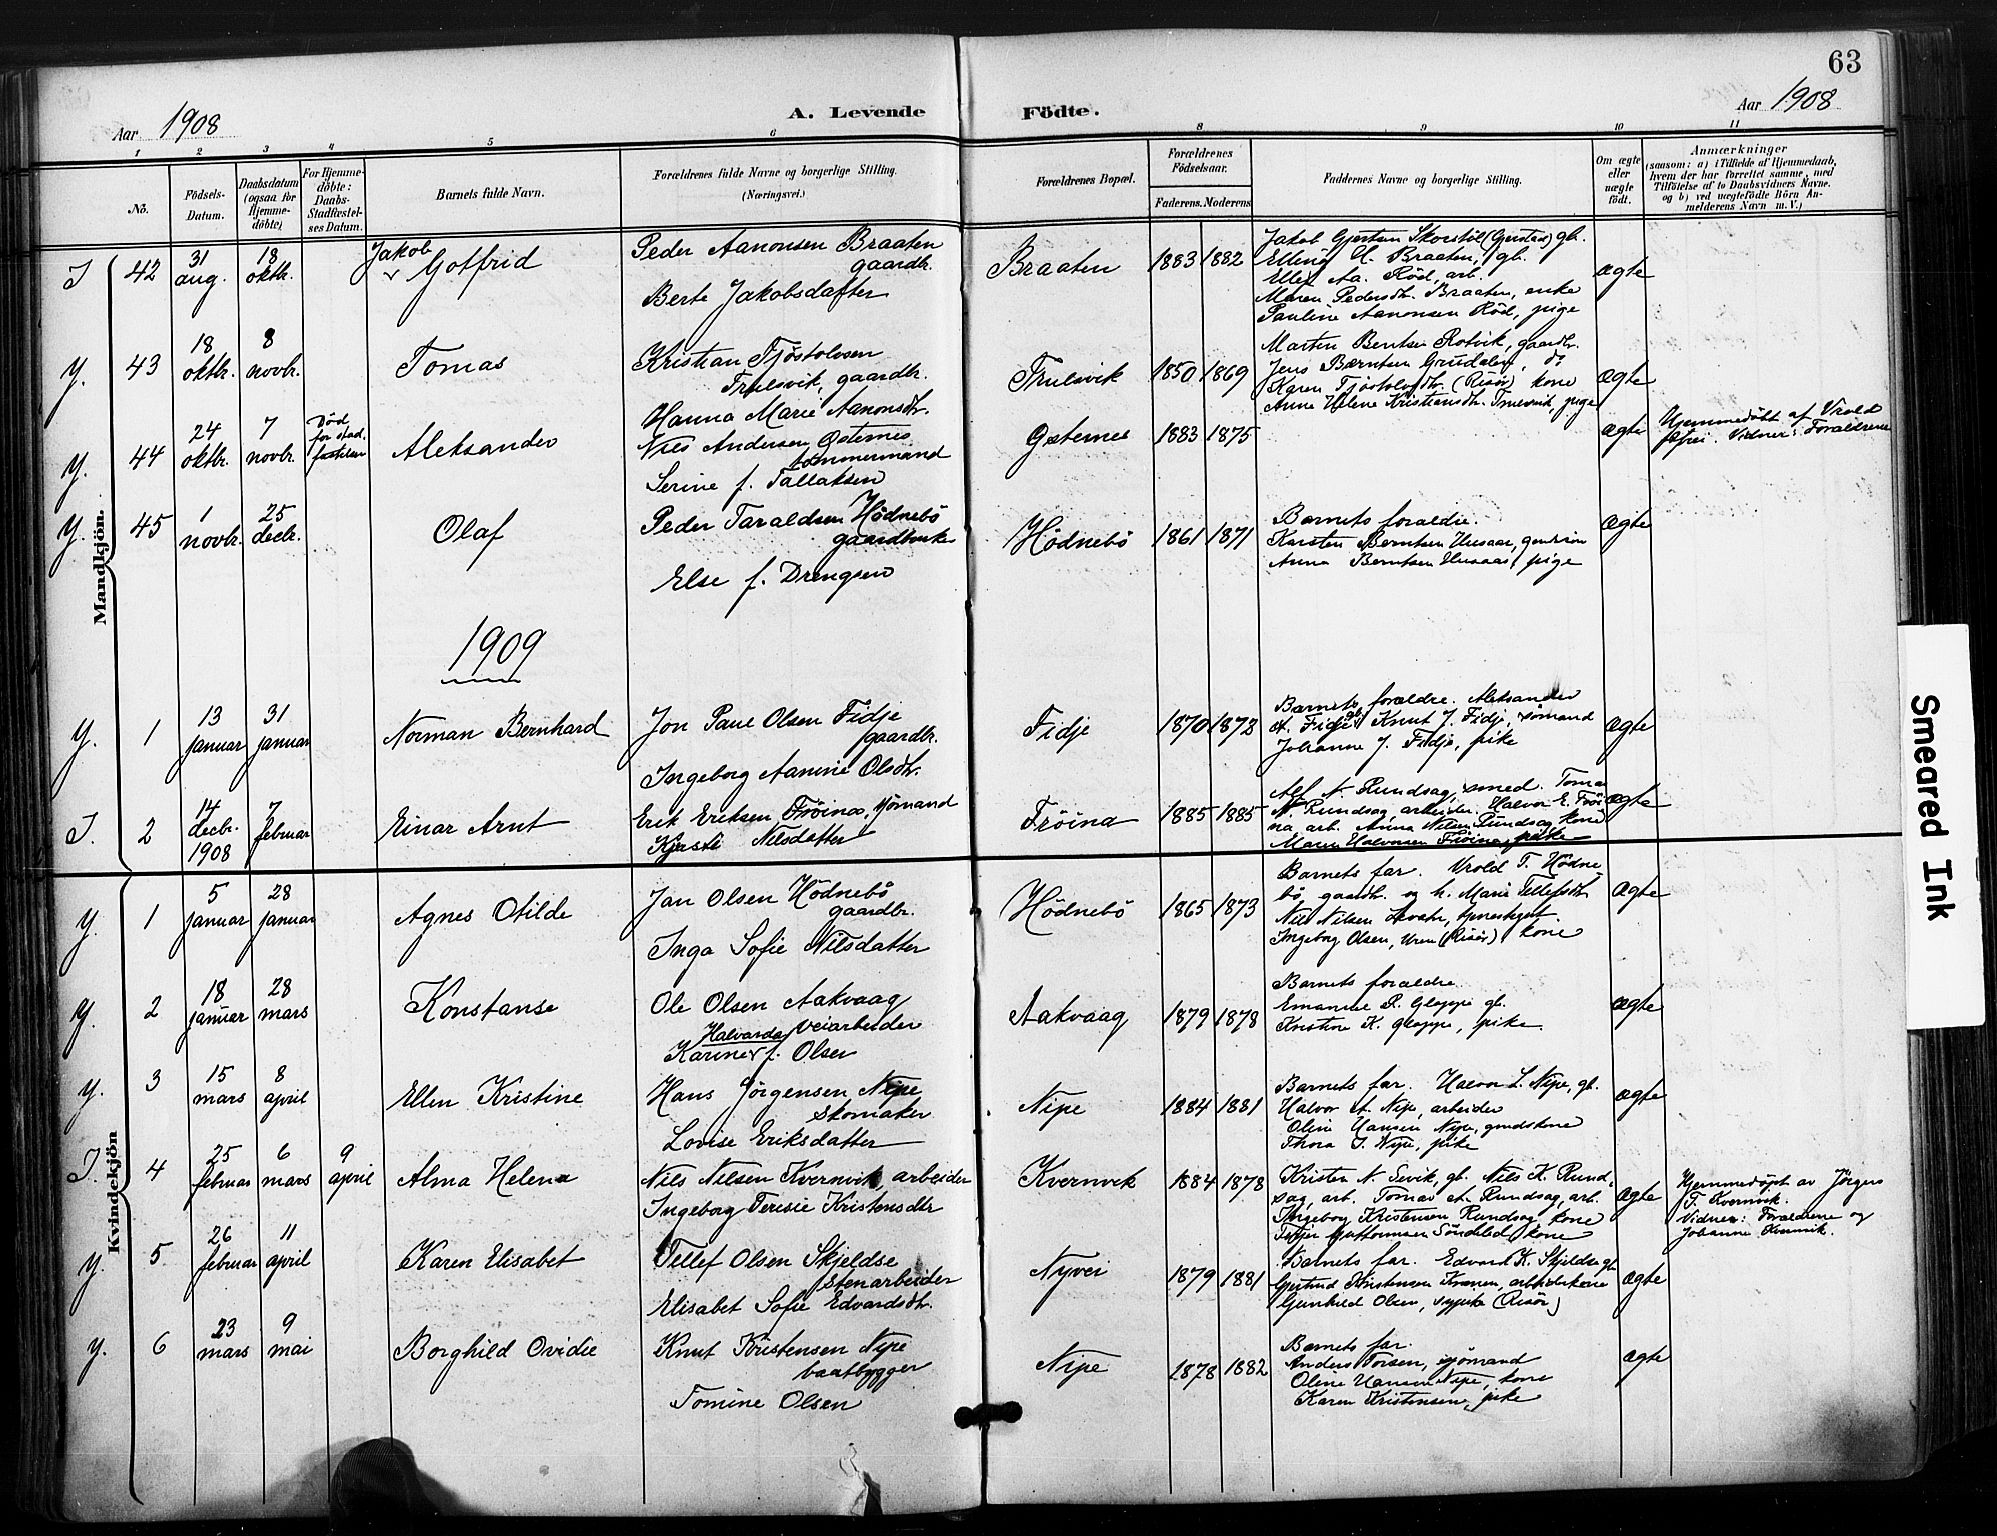 63
Aar 1908
A. Levende Födte.
Aar 1908
1 2 3 4 5 6 8 9 10 11
No.
Födsels-Datum.
Daabsdatum (ogsaa for Hjemme-döbte)
For Hjemme-döbte: Daabs-Stadfæstel-ses Datum.
Barnets fulde Navn.
Forældrenes fulde Navne og borgerlige Stilling.
(Næringsvei.)
Forældrenes Bopæl.
Forældrenes Födselsaar.
Faderens. Moderens
Faddernes Navne og borgerlige Stilling.
Om ægte eller uægte födt.
Anmærkninger
(saasom: a) i Tilfælde af Hjemmedaab,
hvem der har forrettet samme, med
Tilföielse af to Daabsvidners Navne.
og b) ved uægtefödte Börn An-
melderens Navn m. V.)
Mandkjön.
I 42 31 aug. 18 oktbr. Jakob
Gotfrid
Peder Aanonsen Braaten
gaardbr.
Berte Jakobsdatter
Braaten 1883 1882
Jakob Gjertsen Skorstöl (Gjerstad) gb.
Elling A. Braaten, gb.
Ellef Aa. Röd, arb.
Maren Pedersdtr. Braaten, enke
Pauline Aanonsen Röd, pige
ægte
Y. 43 18 oktbr. 8 novbr.
Tomas
Kristian Tjöstolvsen
Trulsvik, gaardbr.
Hanna Marie Aanonsdtr.
Trulsvik 1850 1869
Marten Berntsen Rotvik, gaardbr.
Jens Bærntsen Grudalen, do
Karen Tjöstolvsdtr. (Risör) kone
Anne Helene Kristiansdtr. Trulsvik, pige
ægte
Y. 44 24 oktbr. 7 novbr. Död før stad-fæstelsen
Aleksander
Nils Andersen Østernes
tømmermand
Serine f. Tallaksen
Østernes 1883 1875
ægte
Hjemmedöbt af Vrold
Vidner: Forældrene
Y. 45 1 novbr. 25 decbr.
Olaf
Peder Taraldsen Hödnebö
gaardbruker
Else f. Drengsen
Hödnebö 1861 1871
Barnets forældre.
Karsten Berntsen Husaas, gaardsön
Anna Berntsen Husaas, pige
ægte
1909
Y. 1 13 januar 31 januar
Norman Bernhard
Jon Paul Olsen Fidje
gaardbr.
Ingeborg Aanine Olsdtr.
Fidje 1870 1872
Barnets forældre. Aleksander
A. Fidje gb. Knut J. Fidje, sømand
Johanne J. Fidje, pike
ægte
I. 2 14 decbr. 1908 7 februar
Einar Arnt
Erik Eriksen Fröina, sjömand
Kjersti Nilsdatter
Fröina 1885 1885
Alf N. Rundsag, smed. Tomas
N. Rundsag, arbeider. Halvor E. Fröi-
na arb. Anna Nilsen Rundsag kone
Maren Halvorsen Fröina, pike
ægte
Kvindekjön
Y. 1 5 januar 28 januar
Agnes Otilde
Jan Olsen Hödnebö
gaardbr.
Inga Sofie Nilsdatter
Hödnebö 1865 1873
Barnets far. Vrold T. Hödne-
bö gaardbr. og h. Marie Tellefsdtr.
Nils Nilsen tjenestegut.
Ingeborg Olsen, Uren (Risör), kone
ægte
Y. 2 18 januar 28 mars
Konstanse
Ole Olsen Aakvaag
veiarbeider
Halvarda
Karine f. Olsen
Aakvaag 1879 1878
Barnets forældre.
Emanuel P. Gloppe gb.
Kristine K. Gloppe, pike
ægte
Y. 3 15 mars 8 april
Ellen Kristine
Hans Jörgensen Nipe
skomaker
Lovise Eriksdatter
Nipe 1884 1881
Barnets far. Halvor L. Nipe, gb.
Halvor A. Nipe, arbeider
Oline Hansen Nipe, gaardskone
Thora J. Nipe, pike
ægte
I. 4 25 februar 6 mars 9 april
Alma Helena
Nils Nilsen Kvernvik, arbeider
Ingeborg Teresie Kristensdtr
Kvernvik 1884 1878
Kristen N. Sevik, gb. Nils K. Rund-
sag, arb. Tomas A. Rundsag, arb.
Ingeborg Kristensen Rundsag kone
Guttormsen Söndeled, kone
ægte
Hjemmedöpt av Jörgen
T. Kvernvik.
Vidner: Forældrene og
Johanne Kvernvik.
Y. 5 26 februar 11 april
Karen Elisabet
Tellef Olsen Skjeldsø
stenarbeider
Elisabet Sofie Edvardsdtr.
Nyvei 1879 1881
Barnets far. Edvard K. Skjeldsø gb
Gjertrud Kristensen Kranen, arbeiderkone
Gunhild Olsen, sypike (Risör)
ægte
Y. 6 23 mars 9 mai
Borghild Ovidie
Knut Kristensen Nipe
baatbygger
Tomine Olsen
Nipe 1878 1882
Barnets far.
Anders Torsen, sjömand
Oline Hansen Nipe, kone
Karen Kristensen, pike
ægte
Smeared Ink